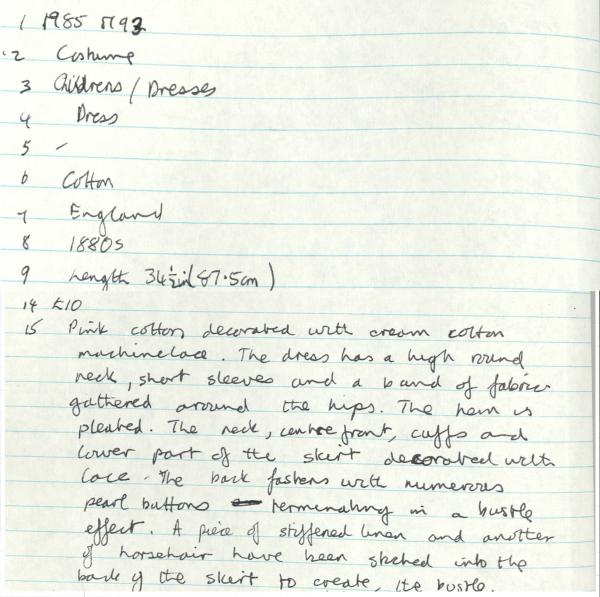 1 1985 M93
2 Costume
3 Childrens / Dresses
4 Dress
5 -
6 Cotton
7 England
8 1880s
9 Length 34½in (87.5cm)
14 £10
15 Pink cotton decorated with cream cotton
machine lace. The dress has a high round
neck, short sleeves and a band of fabric
gathered around the hips. The hem is
pleated. The neck, centre front, cuffs and
lower part of the skirt decorated with
lace. The back fastens with numerous
pearl buttons terminating in a bustle
effect. A piece of stiffened linen and another
of horsehair have been stitched into the
back of the skirt to create the bustle.